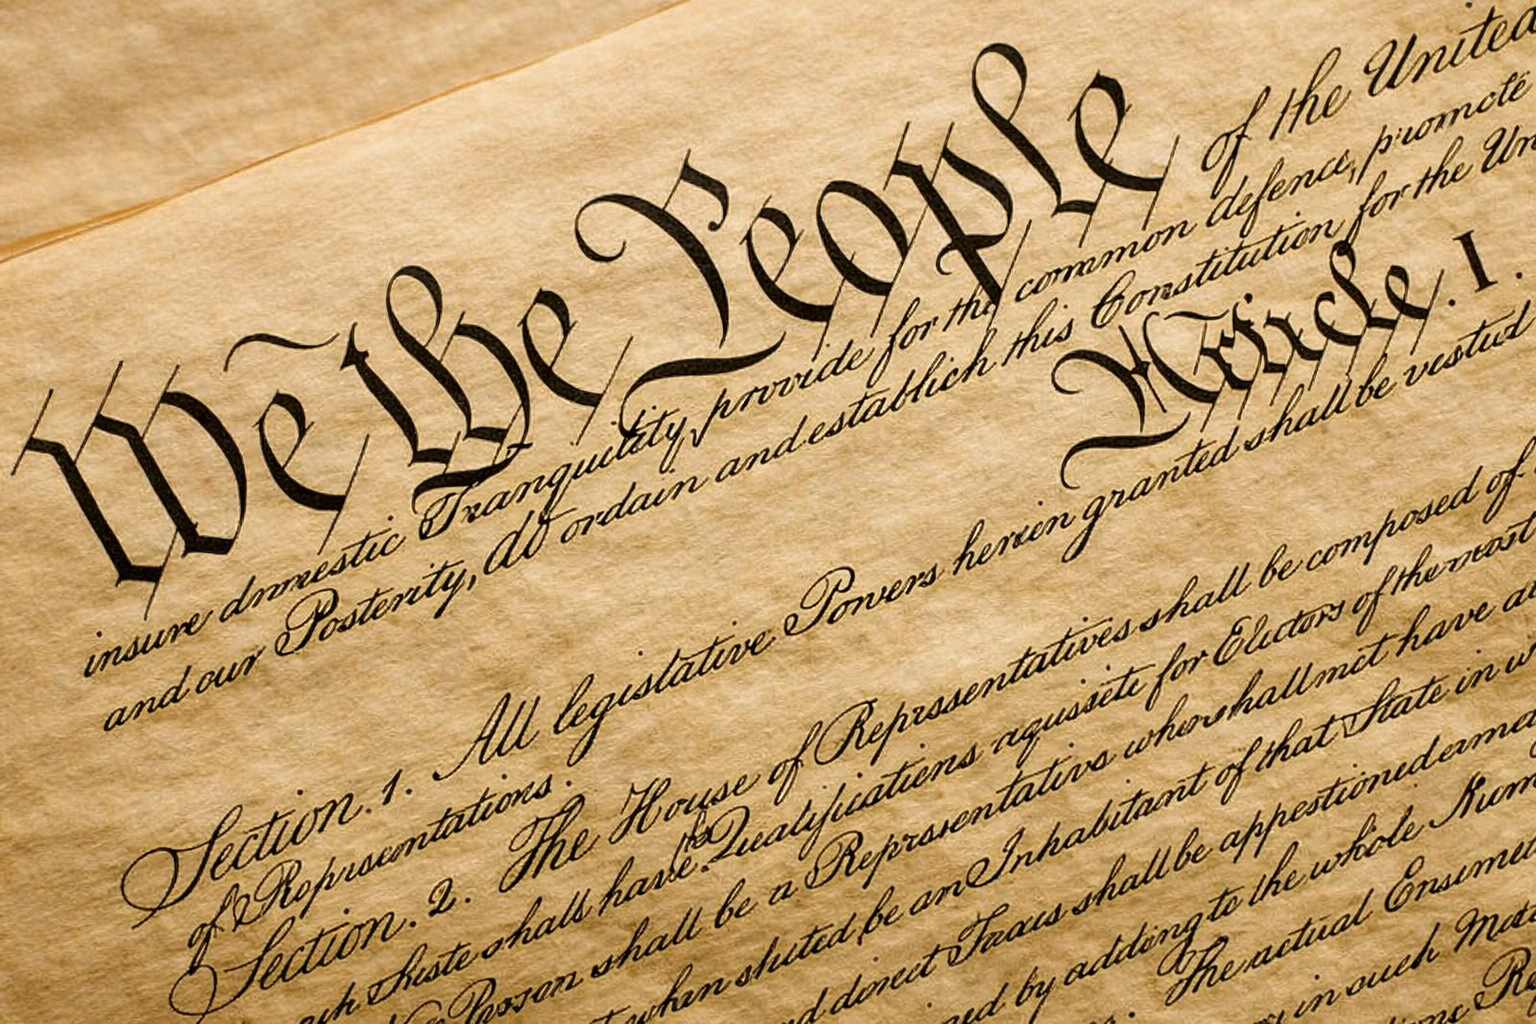 We the People of the United
insure dnmestic Tranquility, provide for the common defence, promote
and our Posterity, do ordain and establich this Constitution for the Un
Article. I.
Section. 1. All legislative Powers herein granted shall be vested
of Representations.
Section. 2. The House of Representatives shall be composed of
shall have the Qualifications for Electors of the most
Person shall be a Representative who shall not have
when be an Inhabitant of that State in w
direct shall be
by adding to the whole Num
The actual
in such